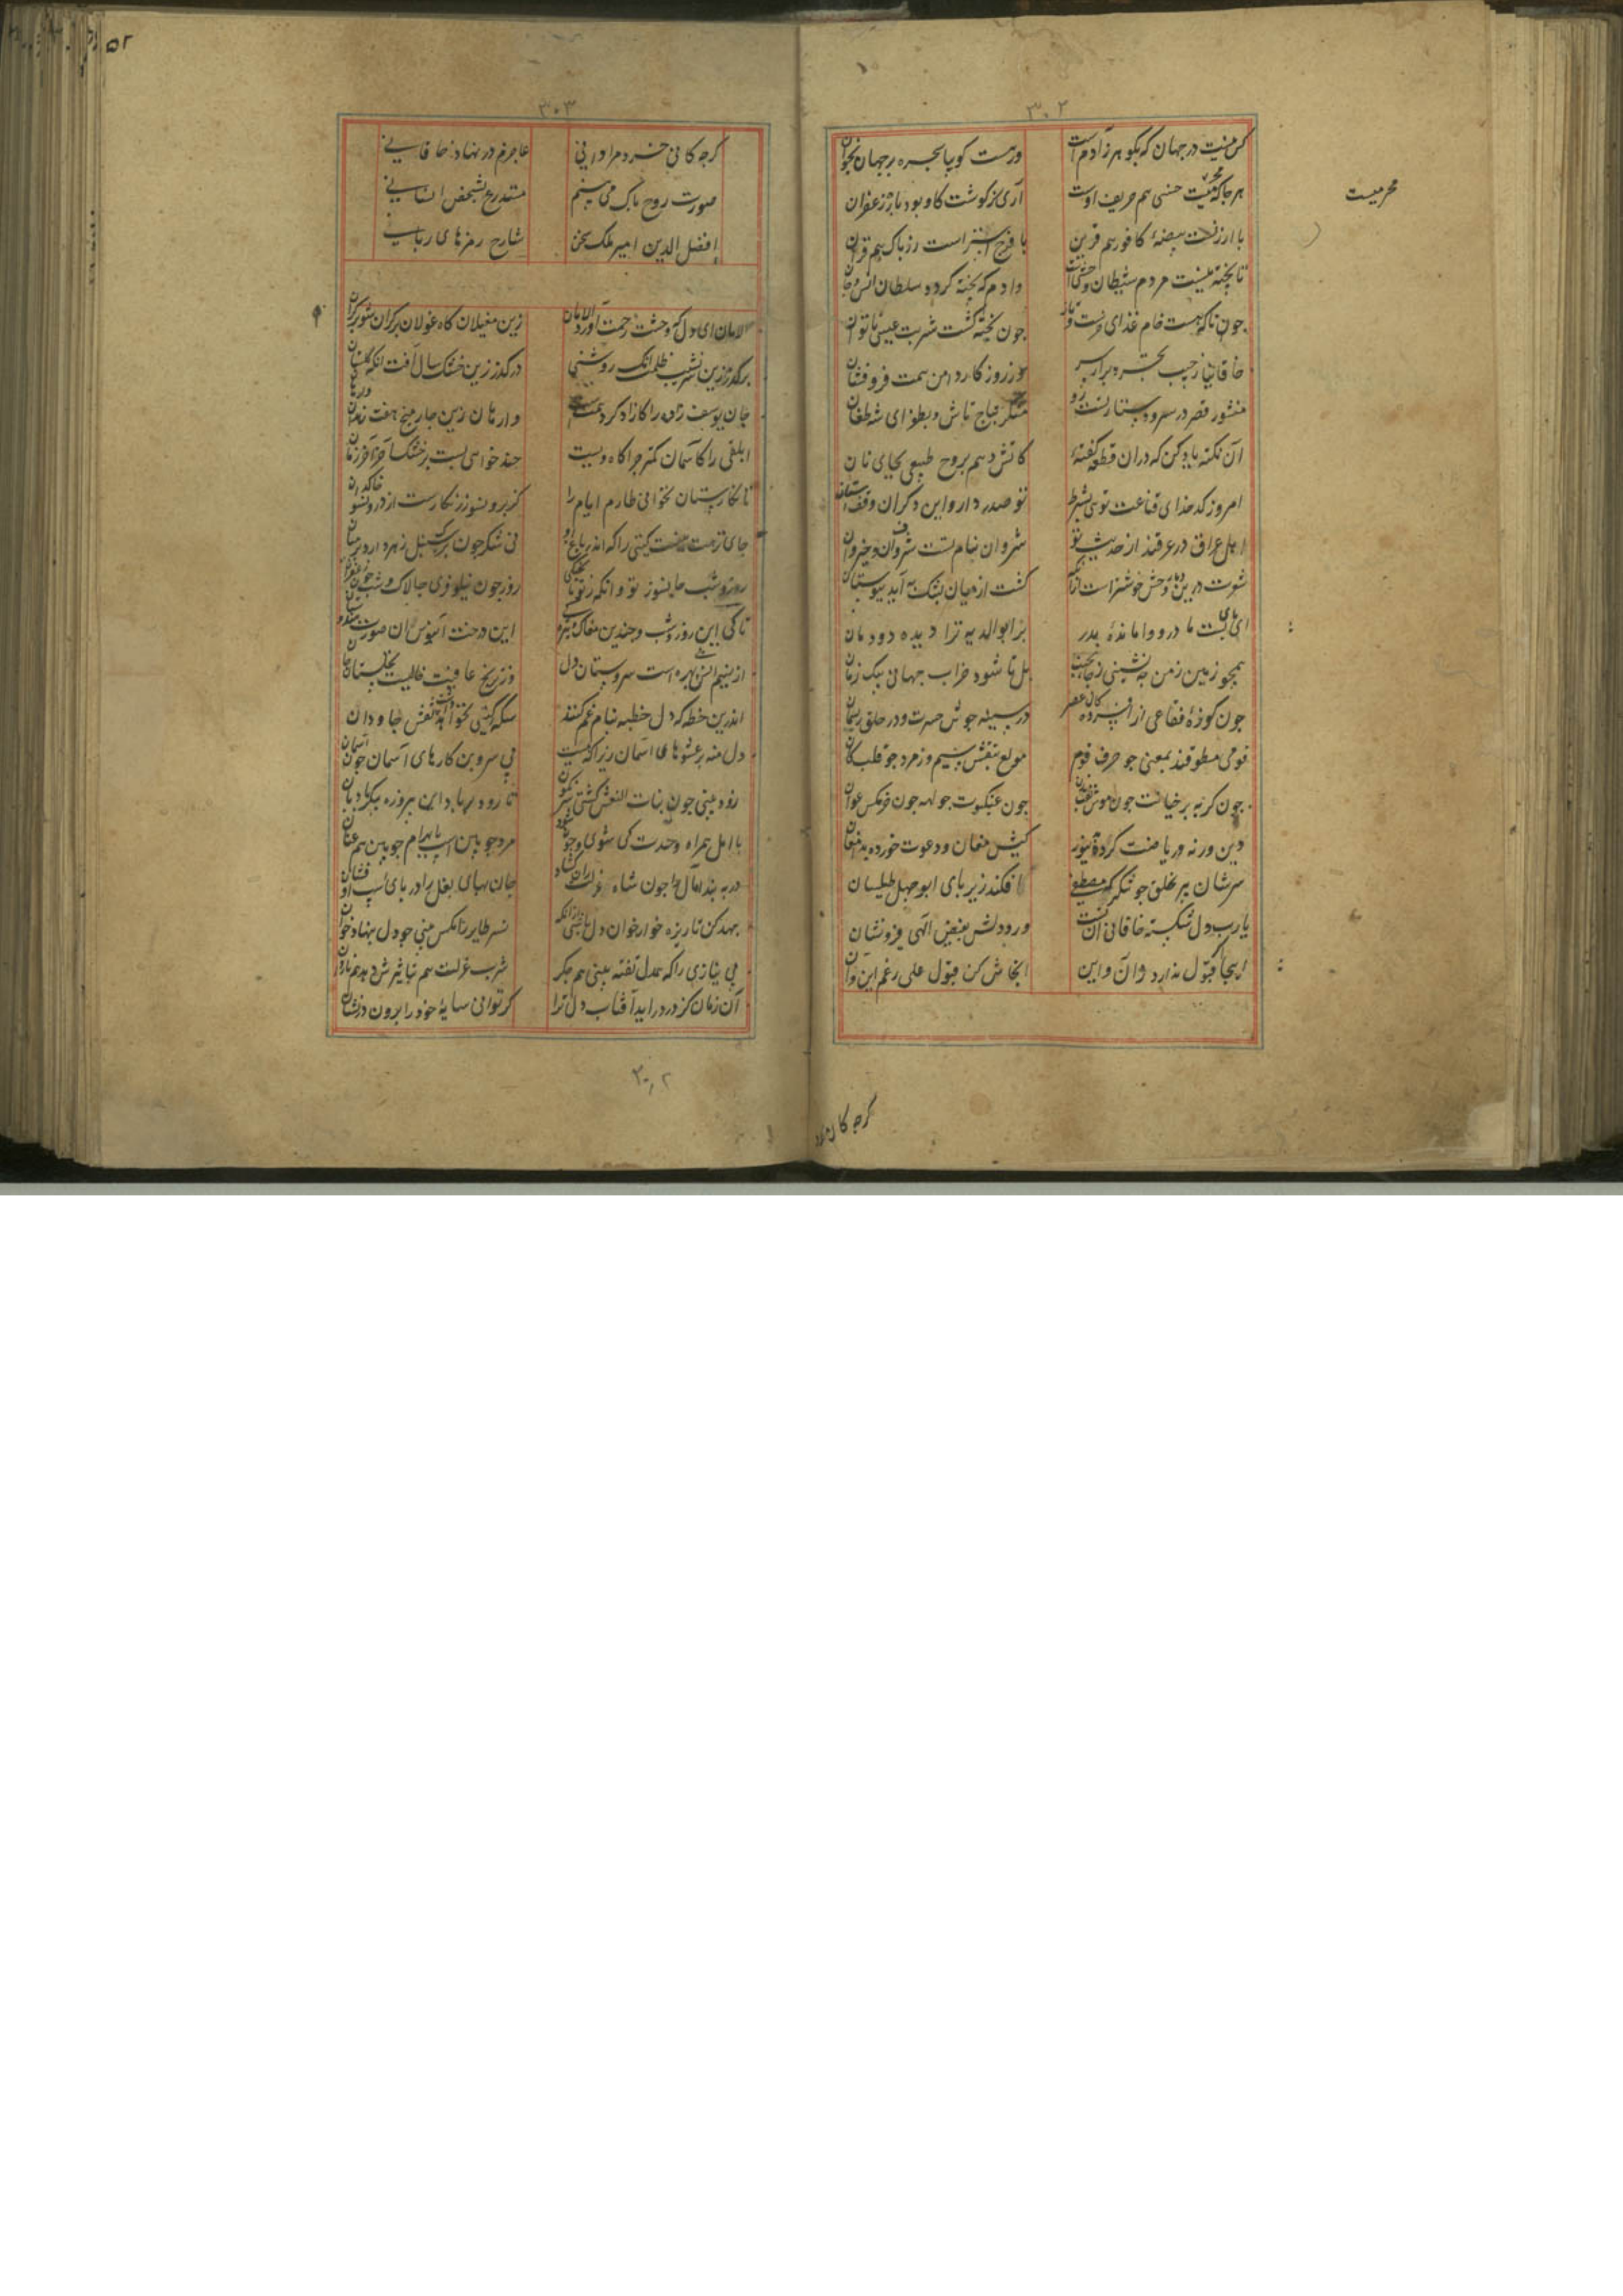 ۳۰۲
کس نیست در جهان که بگوهر ز آدم است
ورهست کو بیا بجهره برجهان بخوان
هرجا که محرمیت خسی هم حریف اوست
آری ز کوشت کاو بود بار زعفران
محرمیست
با ارزنست بیضهٔ کافور هم قرین
با فرج استر است زر پاک هم قران
تا پخته نیست مردم شیطان وحشی است
وادم که پخته کردد سلطان انس و جان
جون تاک هست خام غذای
جون پخته کشت شربت عیسی ناتوان
خاقانیا ز جیب تجرد برار سر
وز روزکار دامن همت فرو فشان
منشور فقر در سر دستار تست رو
منکر بتاج تاش و بطغرای شه طغان
آن نکته یاد کن که دران قطعه کفتهٔ
کاتش دهم بروح طبیعی بجای نان
امروز کدخدای قناعت توی بشرط
تو صدر دار و این دکران وقف آستان
اهل عراق در عرقند از حدیث تو
شروان بنام تست شرفوان و خیروان
شعرت درین دیار وحش خوشتر است از آنک
کشت از میان پشک به آید ببوستان
ای پای بست مادر و واماندهٔ پدر
برابوالدیه ترا دیده دودمان
همجو زمین ز من چه نشینی ز جا بجنب
هل تا شود خراب جهانی بیک زمان
جون کوزهٔ فقاعی از افسردکان عصر
در سینه جوش حسرت و در حلق ریسمان
قومی مطوقند بمعنی جو حرف قوم
مولع بنقش سیم و مزور جو قلب کان
جون کربه بر خیانت جون موش نقب زن
جون عنکبوت جولهه جون خرمکس عوان
دین ورنه و ریاضت کرده بنوز
کیش مغان و دعوت خورده بدمغان
سرشان ببر بخلق جو شکر که مصطفی
افکند زیر پای ابوجهل طیلسان
یارب دل شکستهٔ خاقانی آن تست
ورد دلش بفیض الهی فرو نشان
اینجا کر قبول ندارد از آن و این
آنجاش کن قبول علی رغم این و آن
کرجه کان
۳۰۳
کرجه کانی خسرد مرا دانی
عاجزم در نهاد خاقانی
صورت روح پاک می بینم
متدرع بشخص انسانی
افضل الدین امیر ملک سخن
شارح رمزهای ربانی
الامان ای دل که وحشت زحمت آورد الامان
زین مغیلان کاه غولان بر کران شو بر کران
برکذر زین سرنشیب ظلمت آنک روشنی
درکذر زین خشک سال آفت آنک کلستان
جان یوسف زاد را کازاد کرد همتست
وارهان زین جار میخ هفت زندان وارهان
ابلقی را کاسمان کمتر جراکاه ویست
جند خواهی بست بر خشک آخور آخر زمان
تا نکارستان نخوانی طارم ایام را
کز برون سو زرنکارست از درون سو خاکدان
جای نزهت نیست کیتی را که اندر باغ او
نی شکر جون برک سنبل زهر دارد در میان
روز و شب جانسوز
روز جون نیلوفری جالاک و شب جون زعفران
تا کی این روز و شب و جندین مغاک و تیرکی
این درخت آبنوس آن صورت هندوستان
از نسیم انس بی بهره است سروستان دل
وز ترنج عافیت خالیست نخلستان جان
اندرین خطه که دل خطبه بنام غم کنند
سکهٔ کیتی نخواهد داشت نقش جاودان
دل منه بر عشوهای آسمان زیرا که هست
بی سر و بن کارهای آسمان جون آسمان
زود بینی جون بنات النعش کشتی سرنکون
تا رود بر باد این پیروزه پیکر بادبان
با امل همراه وحدت کی شوی
مرد جوبین اسب با بهرام جوبین هم عنان
جون شاه عزلت راه کشاد
جان بهای نعل را در پای اسب او فشان
جهد کن تا ریزه خوار خوان دل باشی از آنکه
نسر طایر را مکس بینی جو دل بنهاد خوان
بی نیازی را که هم دل تفته بینی هم جکر
شرب عزلت هم تباشیرش دهد هم ناردان
آن زمان کز در درآید آفتاب دل ترا
کر توانی سایهٔ خود را برون در نشان
۵۲